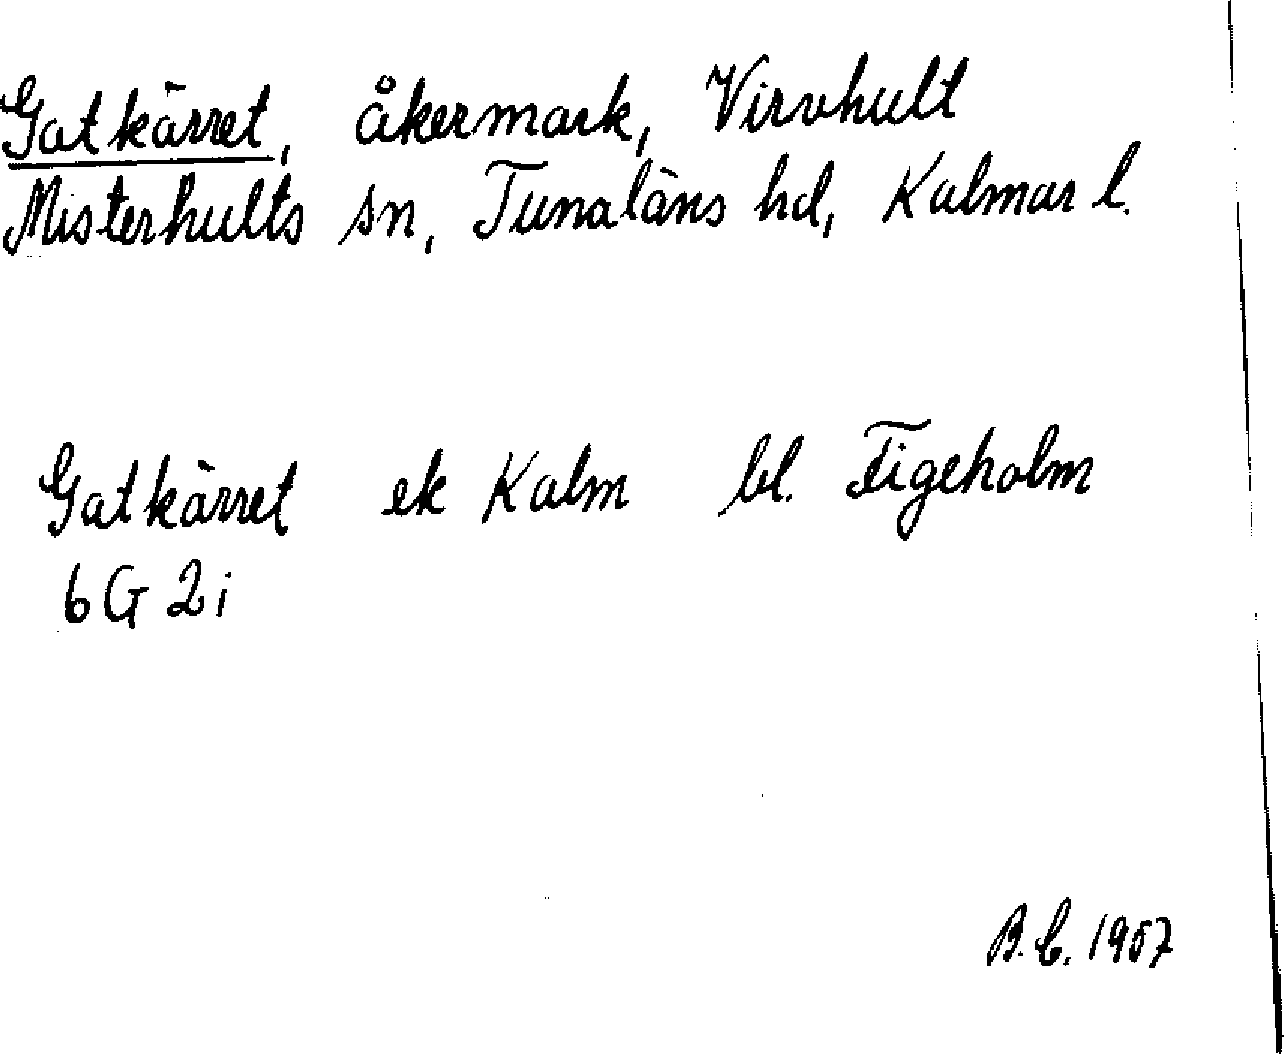 Gatkärret, åkermark, Virvhult
Misterhults sn, Tunaläns hd, Kalmar l.
Gatkärret ek Kalm bl. Figeholm
6 G 2 i
B. C. 1957